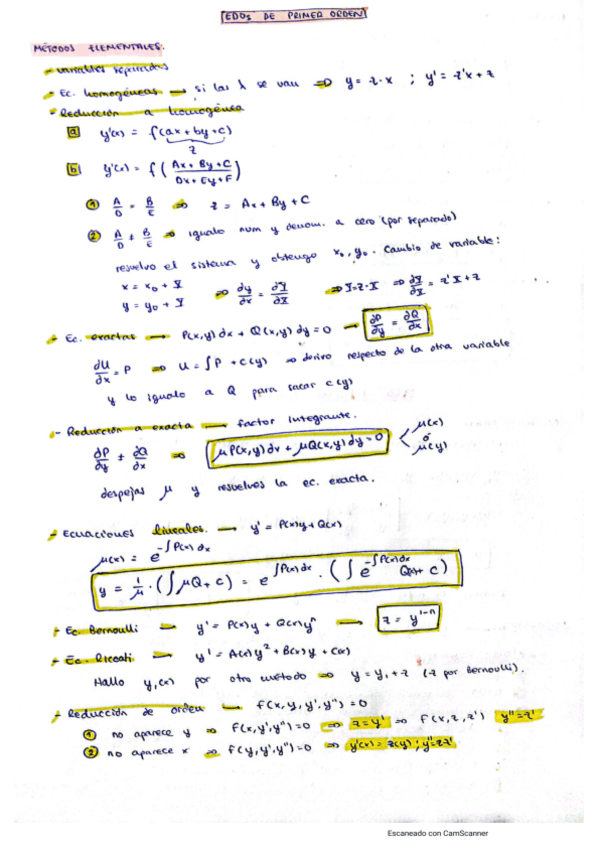 EDOs DE PRIMER ORDEN
MÉTODOS ELEMENTALES.
- variables separadas
- Ec. homogéneas → si las λ se van ⇒ y = z·x ; y' = z'x + z
- Reducción a homogénea
a) y'(x) = f(ax + by + c)
z
b) y'(x) = f( (Ax + By + C) / (Dx + Ey + F) )
① A/D = B/E ⇒ z = Ax + By + C
② A/D ≠ B/E ⇒ igualo num y denom. a cero (por separado)
resuelvo el sistema y obtengo x₀, y₀. Cambio de variable:
x = x₀ + X
y = y₀ + Y ⇒ dy/dx = dY/dX ⇒ Y = z·X ⇒ dY/dX = z'X + z
- Ec. exactas → P(x,y)dx + Q(x,y)dy = 0 → ∂P/∂y = ∂Q/∂x
∂U/∂x = P ⇒ U = ∫P + C(y) ⇒ derivo respecto de la otra variable
y lo igualo a Q para sacar C(y)
- Reducción a exacta → factor integrante.
∂P/∂y ≠ ∂Q/∂x ⇒ μP(x,y)dx + μQ(x,y)dy = 0 < μ(x) o μ(y)
despejas μ y resuelves la ec. exacta.
- Ecuaciones lineales. → y' = P(x)y + Q(x)
μ(x) = e^(-∫P(x)dx)
y = 1/μ · (∫μQ + C) = e^(∫P(x)dx) · (∫e^(-∫P(x)dx) Q(x) + C)
- Ec. Bernoulli → y' = P(x)y + Q(x)yⁿ → z = y^(1-n)
- Ec. Riccati → y' = A(x)y² + B(x)y + C(x)
Hallo y₁(x) por otro método ⇒ y = y₁ + z (z por Bernoulli).
- Reducción de orden → f(x, y, y', y'') = 0
① no aparece y ⇒ F(x, y', y'') = 0 ⇒ z = y' ⇒ F(x, z, z') y'' = z'
② no aparece x ⇒ F(y, y', y'') = 0 ⇒ y'(x) = z(y) ; y'' = z·z'
Escaneado con CamScanner